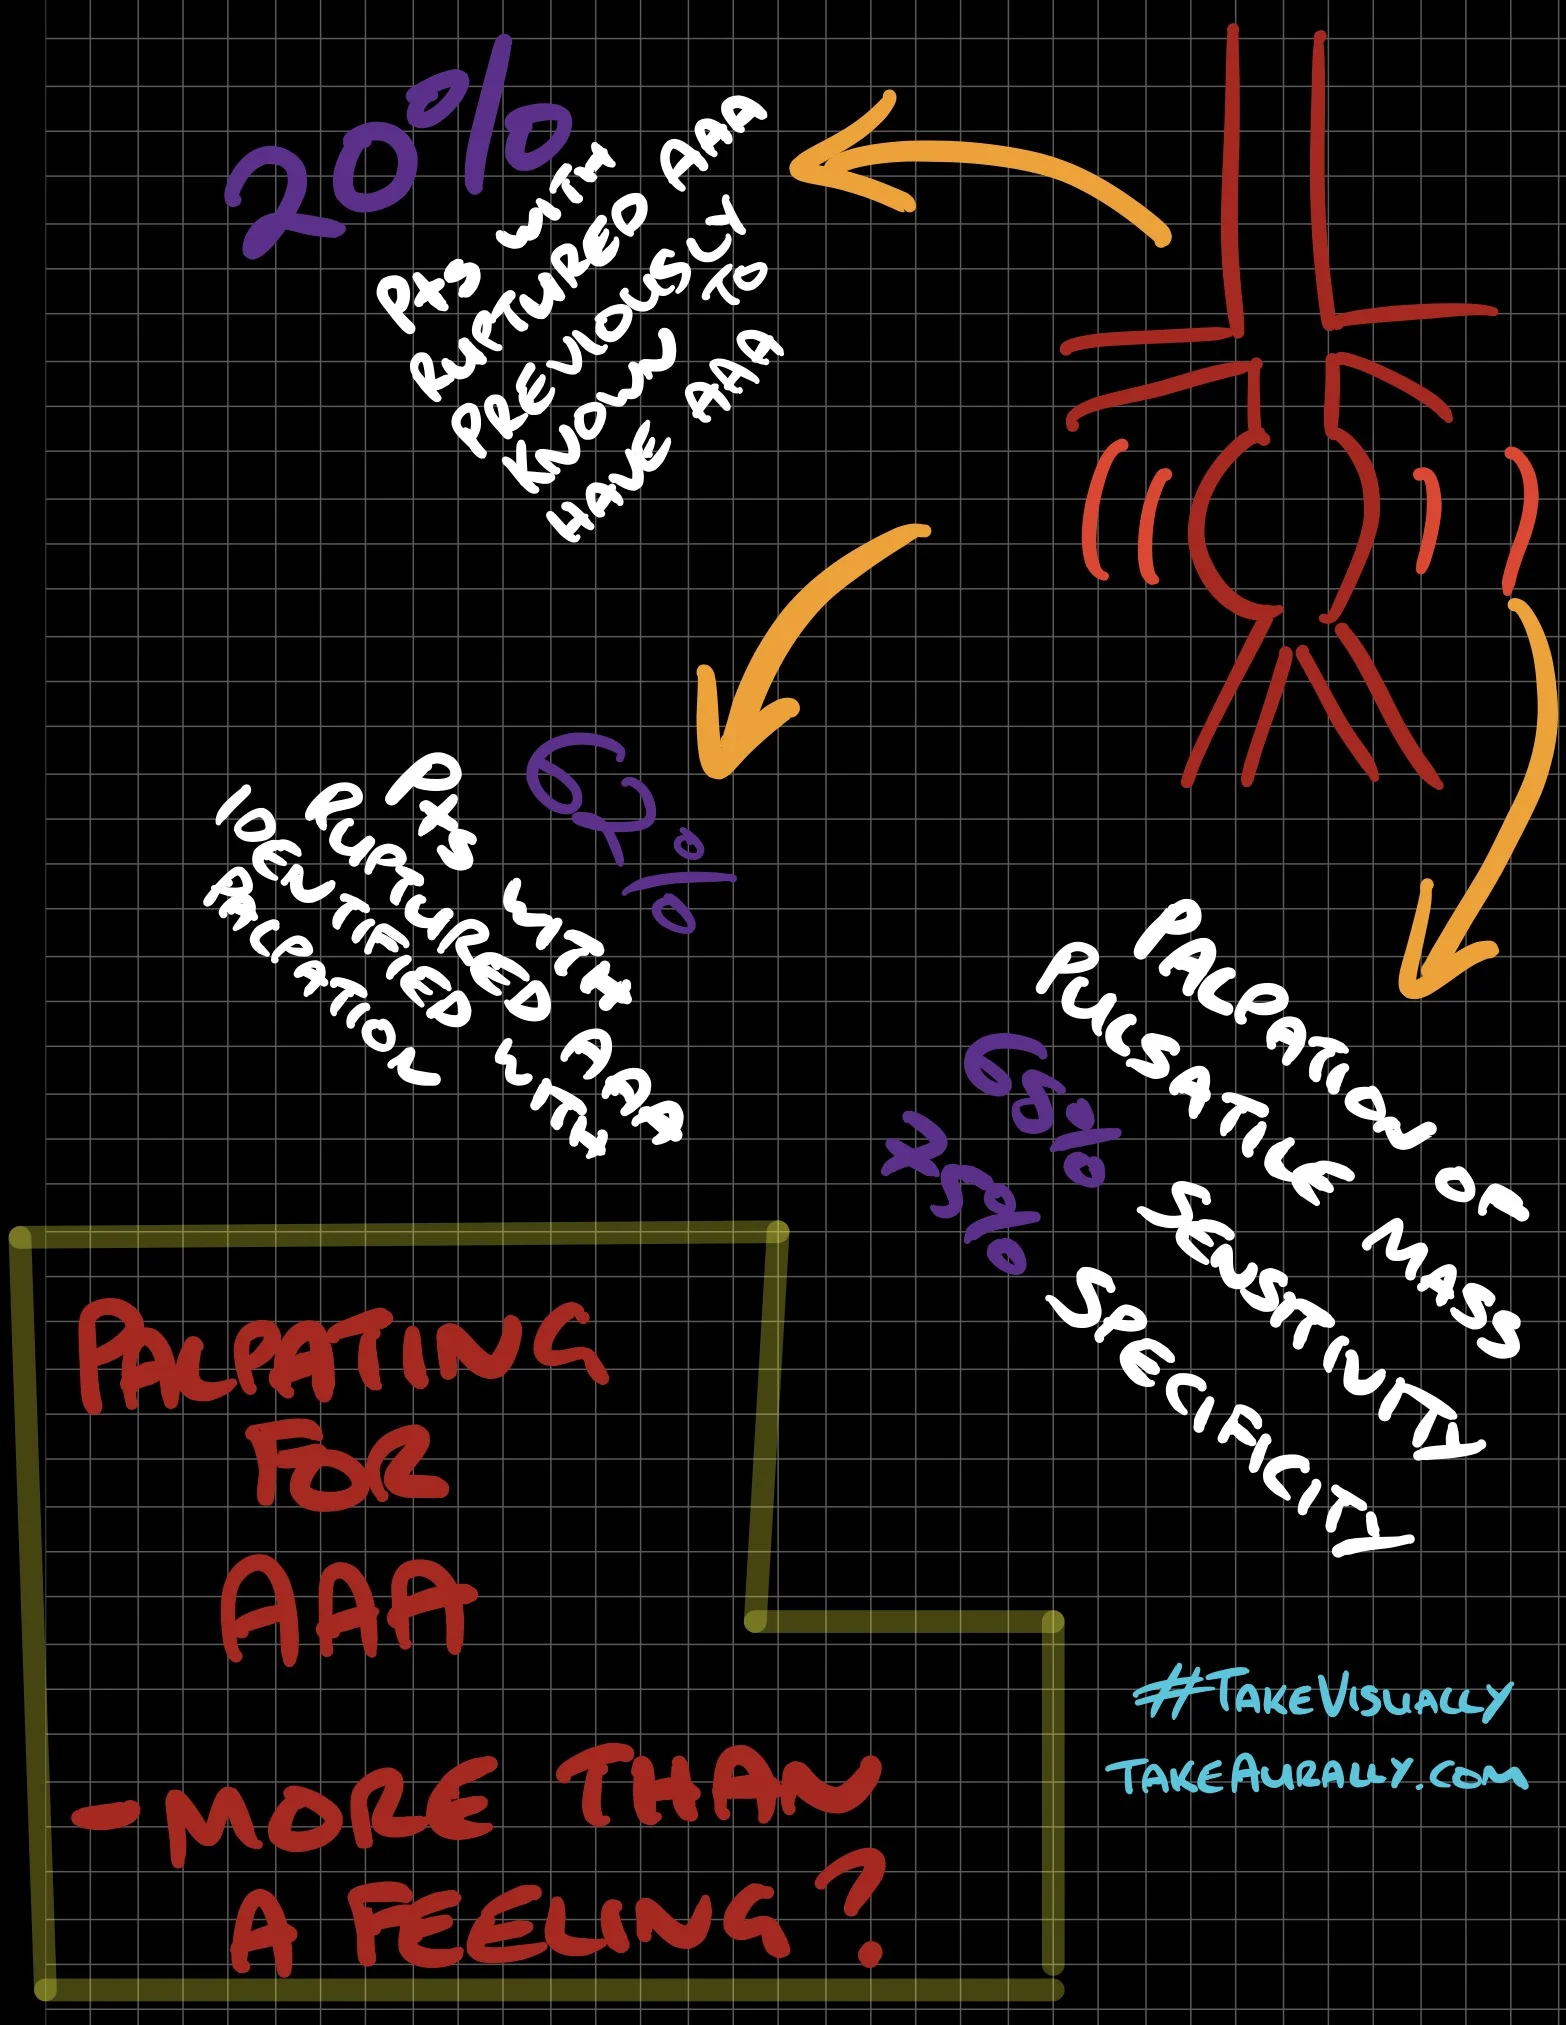 20%
Pts WITH
RUPTURED AAA
PREVIOUSLY
KNOWN TO
HAVE AAA
62%
Pts WITH
RUPTURED AAA
IDENTIFIED WITH
PALPATION
PALPATION OF
PULSATILE MASS
68% SENSITIVITY
75% SPECIFICITY
PALPATING
FOR
AAA
- MORE THAN
A FEELING?
#TAKEVISUALLY
TAKEAURALLY.COM